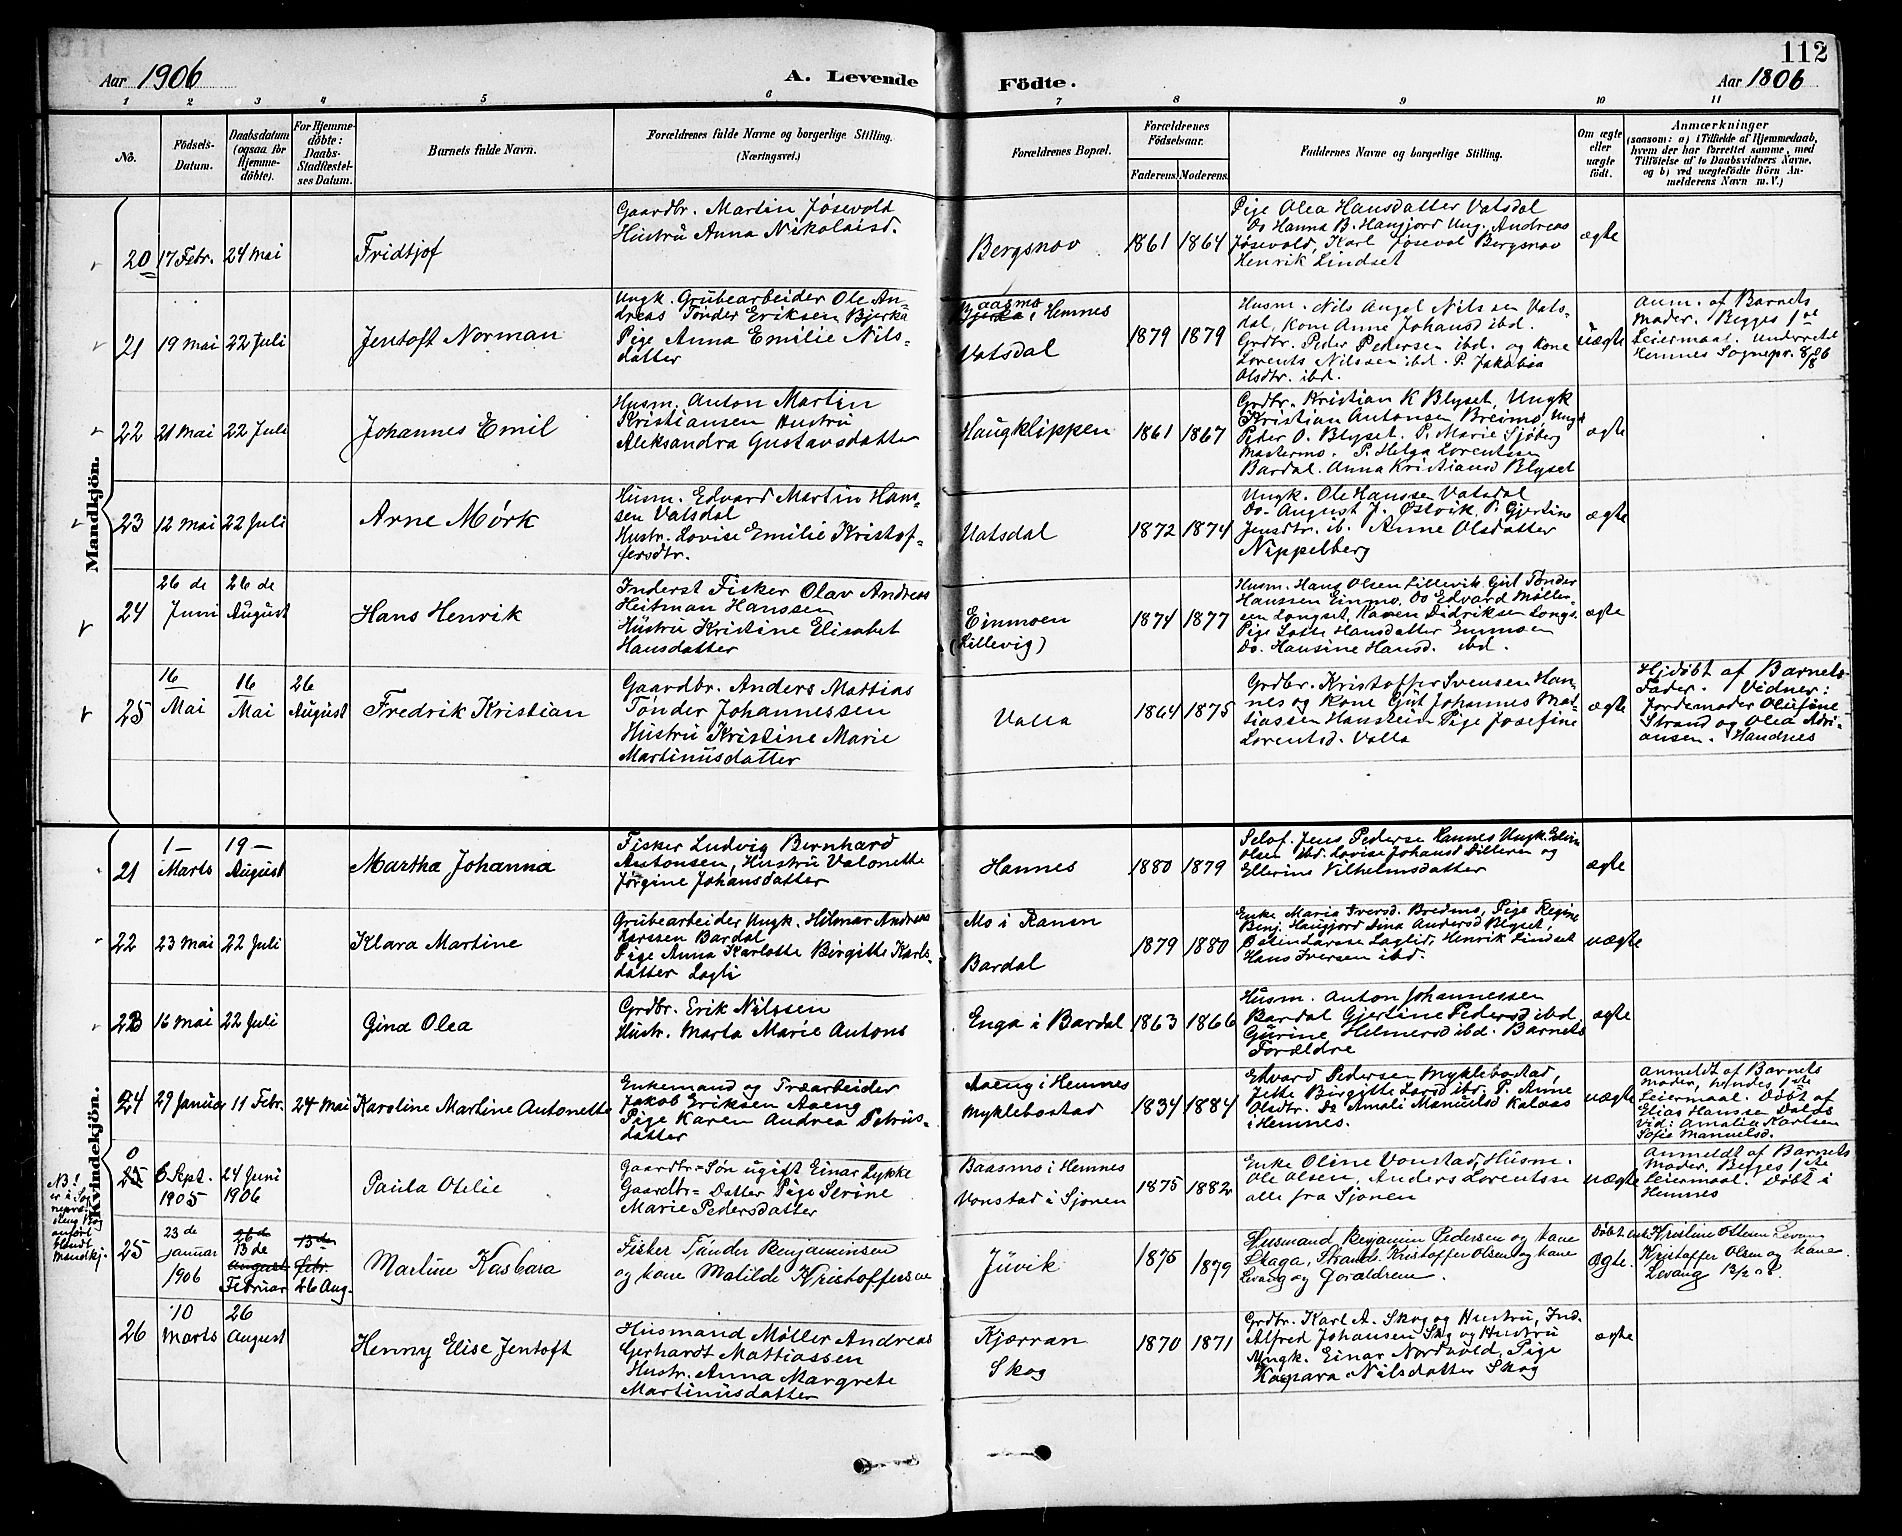 112
Aar 1906
A. Levende
Födte.
Aar 1806
1 2 3 4 5 6 7 8 9 10 11
No.
Födsels-
Datum.
Daabsdatum
(ogsaa for
Hjemme-
döbte).
For Hjemme-
døbte:
Daabs-
Stadfæstel-
ses Datum.
Barnets fulde Navn.
Forældrenes fulde Navne og borgerlige Stilling.
(Næringsvei.)
Forældrenes Bopæl.
Forældrenes
Födselsaar.
Faderens. Moderens.
Faddernes Navne og borgerlige Stilling.
Om ægte
eller
uægte
födt.
Anmærkninger
(saasom: a) i Tilfælde af Hjemmedaab,
hvem der har forrettet samme, med
Tilföielse af to Daabsvidners Navne,
og b) ved uægtefödte Börn An-
melderens Navn m. V.)
Mandkjön.
20 17 Febr. 24 Mai
Fridtjof
Gaardbr. Martin Jøsevold
Hustru Anna Nikolaisd.
Bergsnov
1861 1864
Pige Olea Hansdatter Vatsdal
Do Hanna B. Haugjord Ung. Andreas
Jøsevold, Karl Jøsevol Bergsnov
Henrik Lindset
ægte
21 19 Mai 22 Juli
Jentoft Norman
Ungk. Grubearbeider Ole An-
dreas Tønder Eriksen Bjerka
Pige Anna Emilie Nils-
datter
Baasmo
Bjerka i Hemnes
Vatsdal
1879 1879
Husm. Nils Angel Nilssen Vats-
dal, Kone Anne Johansd ibd.
Grdbr. Peder Pedersen ibd. og Kone
Lorents Nilssen ibd. P. Jakobia
Olsdtr. ibd.
uægte
Anm. af Barnets
Moder. Begges 1ste
Leiermaal. Underrettet
Hemnes Sognepr. 8/8 06
22 21 Mai 22 Juli
Johannes Emil
Husm. Anton Martin
Kristiansen Hustru
Aleksandra Gustavsdatter
Haugklippen
1861 1867
Grdbr. Kristian K Blyset, Ungk
Kristian Antonsen Breimo, Ungk
Peder O. Blyset. P. Marie Sjøberg
Mastermo. P. Helga Lorentsen
Bardal. Anna Kristiansd Blyset
ægte
23 12 Mai 22 Juli
Arne Mørk
Husm. Edvard Martin Hans-
sen Vatsdal
Hustr. Lovise Emilie Kristof-
fersdtr.
Vatsdal
1872 1874
Ungk. Ole Hanssen Vatsdal
Do- August J. Østvik, P. Gjertine
Jensdtr. ib. Anne Olsdatter
Nippelberg
ægte
24 26 de Juni 26 de August
Hans Henrik
Inderst Fisker Olav Andreas
Heitman Hanssen
Hustru Kristine Elisabet
Hansdatter
Einmoen
(Lillevig)
1874 1877
Husm. Hans Olsen Lillevik Gut Tønder
Hanssen Einmo, Do Edvard Møller-
sen Longset, Haaen Didriksen Longs.
Pige Lotte Hansdatter Einmoen
Do. Hansine Hansd. ibd.
ægte
25 16 Mai 16 Mai 26 August
Fredrik Kristian
Gaardbr. Anders Mattias
Tønder Johannessen
Hustru Kristine Marie
Martinusdatter
Valla
1864 1875
Grdbr. Kristoffer Svensen Han-
nes og Kone Gut Johannes Mat-
tiassen Hanstein Pige Josefine
Lorentsd. Valla
ægte
Hjdøbt af Barnets
Fader. Vidner:
Jordemoder Olufine
Strand og Olea Adri-
ansen. Handnes
Kvindekjön.
21 1 – Marts 19 – August
Martha Johanna
Fisker Ludvig Bernhard
Antonsen, Hustru Valonette
Jørgine Johansdatter
Hannes
1880 1879
Selvf. Jens Pederse Hannes Ungk. Edvin
Olsen ibd. Lovise Johansd Dilleren og
Ellerine Vilhelmsdatter
ægte
22 23 Mai 22 Juli
Klara Martine
Grubearbeider Ungk. Hilmar Andreas
Larssen Bardal
Pige Anna Karlotte Birgitte Karls-
datter Lagli
Mo i Ranen
Bardal
1879 1880
Enke Maria Iversd. Bredmo, Pige Regine
Benj. Haugjord Dina Andersd Blyset,
Østen Larsse Laglid, Henrik Lindset
Hans Iversen ibd.
uægte
23 16 Mai 22 Juli
Gina Olea
Grdbr. Erik Nilssen
Hustr. Marta Marie Antons
Enga i Bardal
1863 1866
Husm. Anton Johannessen
Bardal Gjertine Pedersd ibd,
Gurine Helmersd ibd. Barnets
Forældre
ægte
24 29 Januar 11 Febr. 24 Mai
Karoline Martine Antonette
Enkemand og Træarbeider
Jakob Eriksen Aaeng
Pige Karen Andrea Petrus-
datter
Aaeng i Hemnes
Myklebostad
1834 1884
Edvard Pedersen Myklebostad,
Jette Birgitte Larsd ibd, P. Anne
Olsdtr. Do Amali Manuelsd Kalvas
i Hemnes.
uægte
Anmeldt af Barnets
Moder, hendes 1ste
Leiermaal. Døbt af
Elias Hanssen Dalos
Vid: Amalia Karlsen
Sofie Manuelsd.
0
25 6 Sept. 1905 24 Juni 1906
Paula Otelie
Gaardbr- Søn ugift Einar Lykke
Gaardbr= Datter Pige Serine
Marie Pedersdatter
Baasmo i Hemnes
Vonstad i Sjonen
1875 1882
Enke Oline Vonstad, Husm.
Ole Olsen, Anders Lorentsse
alle fra Sjonen
uægte
Anmeldt af Barnets
Moder, Begges 1ste
Leiermaal. Døbt i
Hemnes
NB!
er i Sog
nepræ.
anført
blandt
Mandkj.
25 23 de Januar 1906
26 de
13 de
August
Februar
13 de
febr.
26 Aug-
Martine Kasbara
Fisker Tønder Benjaminsen
og kone Matilde Kristoffersen
Juvik
1875 1879
Husmand Benjamin Pedersen og kone
Skaga, Strand. Kristoffer Olsen og kone
Levang og Forældrene.
ægte.
Kristine Olsen Levang
Kristoffer Olsen og kone
Levang 13/2 06.
26 10 Marts 26 August
Henny Elise Jentoft
Husmand Møller Andreas
Gerhardt Mattiassen
Hustr. Anna Margrete
Martinusdatter
Kjærran
Skog
1870 1871
Grdbr. Karl A. Skog og Hustru, Ind.
Alfred Johansen Skog og Hustru
Ungk. Einar Nordvold, Pige
Kaspara Nilsdatter Skog
ægte